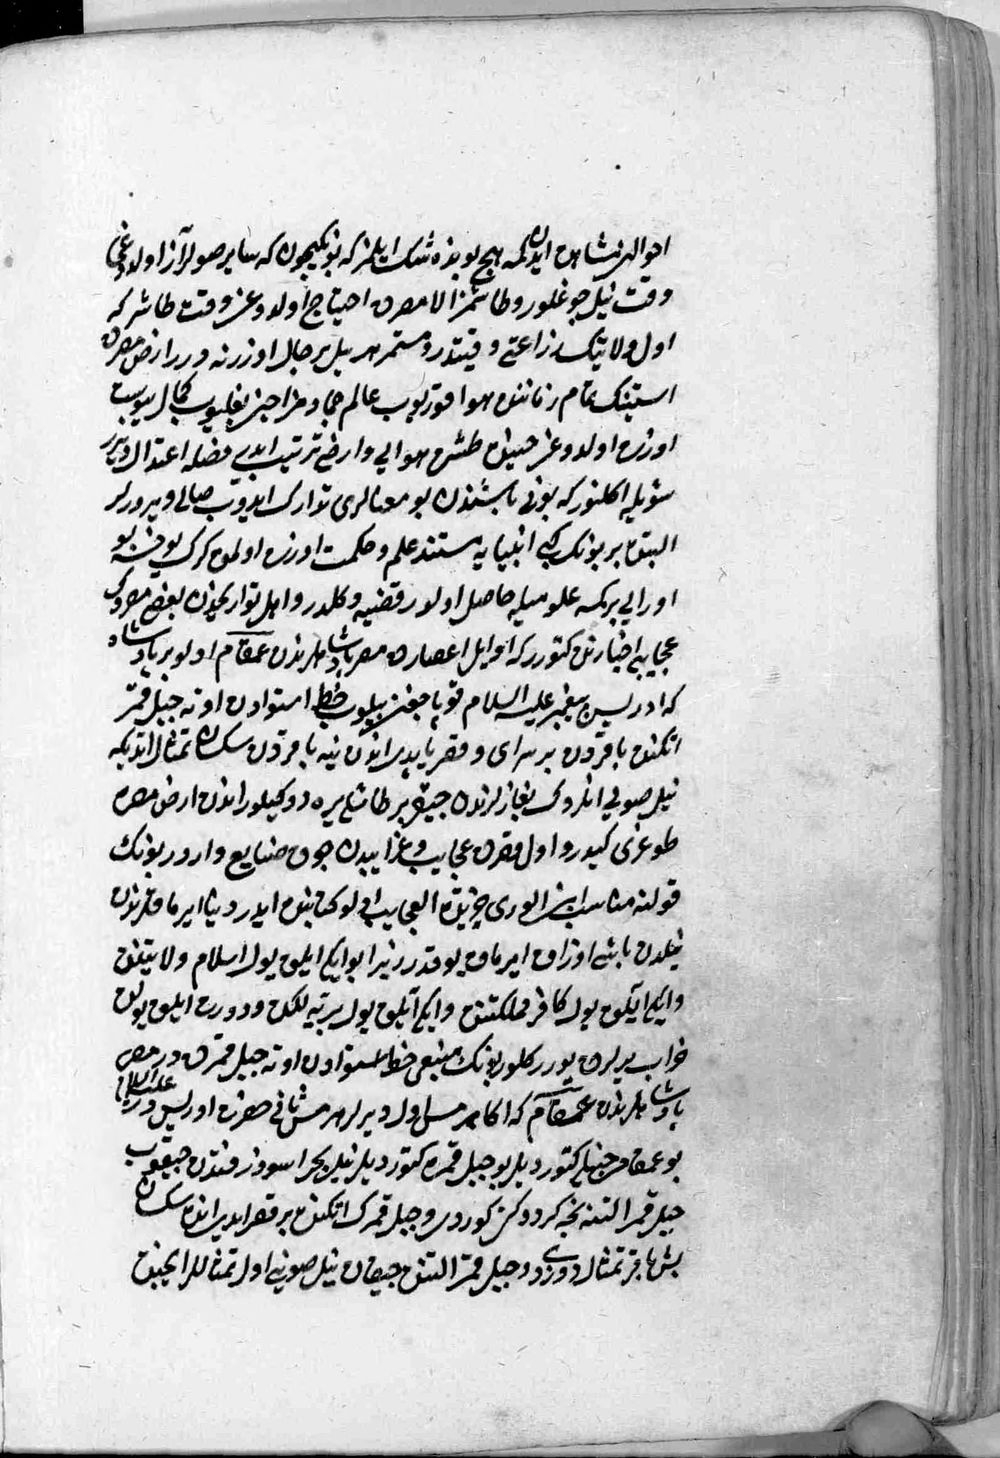 احوالن مشاهده ایدن کمسه هیچ بوندە شك ایلمز که بونکیچون که سایر صولر آز اولدوغی
وقت نیل چوغلور و طاشمز الا مصره احتیاج اولدوغی وقت طاشر که
اول ولایتك زراعتی وقتیدر و مستمر هر یل بر حال اوزرنه درر ارض مصرك
استنك تمام زماننده هوا قوریوب عالم جماد مزاجین بغلیوب کمال یبوست
اوزره اولدوغی حینده طشره هوایی و ارضی ترتیب ایدر فضله اعتدال ویرر
شویله اکلنور که بونی باشندن بو معنالری تدارك ایدوب صالی ویرورلر
البته بر بونك کبی انبیایه مستند علم و حکمت اوزره اولمق کرك یوخسه بو
اورایی بر کمسه علومیله حاصل اولور قضیه دکلدر و اهل تواریخدن بعضی مصرك
عجایبی اخبارنده کتورر که اوایل اعصارده مصر پادشاهلرندن عمقام اولو بر پادشاه
که ادریس پیغمبر علیه السلام قوپاجغن بیلوب خط استوادن اوته جبل قمر
اتکنده باقردن بر سرای و قصر یاپدی اندن ینه باقردن سکسان تمثال اتدی که
نیل صویی انلروك بغازلرندن چیقر بر طاشلی یره دوکیلور اندن ارض مصره
طوغری کیدر و اول قصرده عجایب و غرایبدن چوق صنایع واردر بونك
قولنه مناسب ابن الوردی خریدة العجایب ادلو کتابنده ایدر دنیا ایرماقلرندن
نیلدن باشه اوزاق ایرماق یوقدر زیرا بو ایکی ایلق یول اسلام ولایتنده
و ایکی آیلق یول کافر مملکتنده و ایکی آیلق یول بریه لکده و دورت ایلق یولده
خراب یرلرده یورر کلور بونك منبعی خط استوادن اوته جبل قمرده در مصر
پادشاهلرندن عمقام که اکا هرمس اول دیرلر هرمس ثانی حضرت ادریس در علیه السلام
بو عمقام جنیلر کتوردیلر بو جبل قمره کتوردیلر نیل بحر اسود زفتدن چیقوب
جبل قمر التنه نجه کردوکن کوردی و جبل قمرك اتکنده بر قصر ایدی انده سکسان
بش باقر تمثال دوزدی و جبل قمر التنده چیقان نیل صوینی اول تمثاللر ایچنده